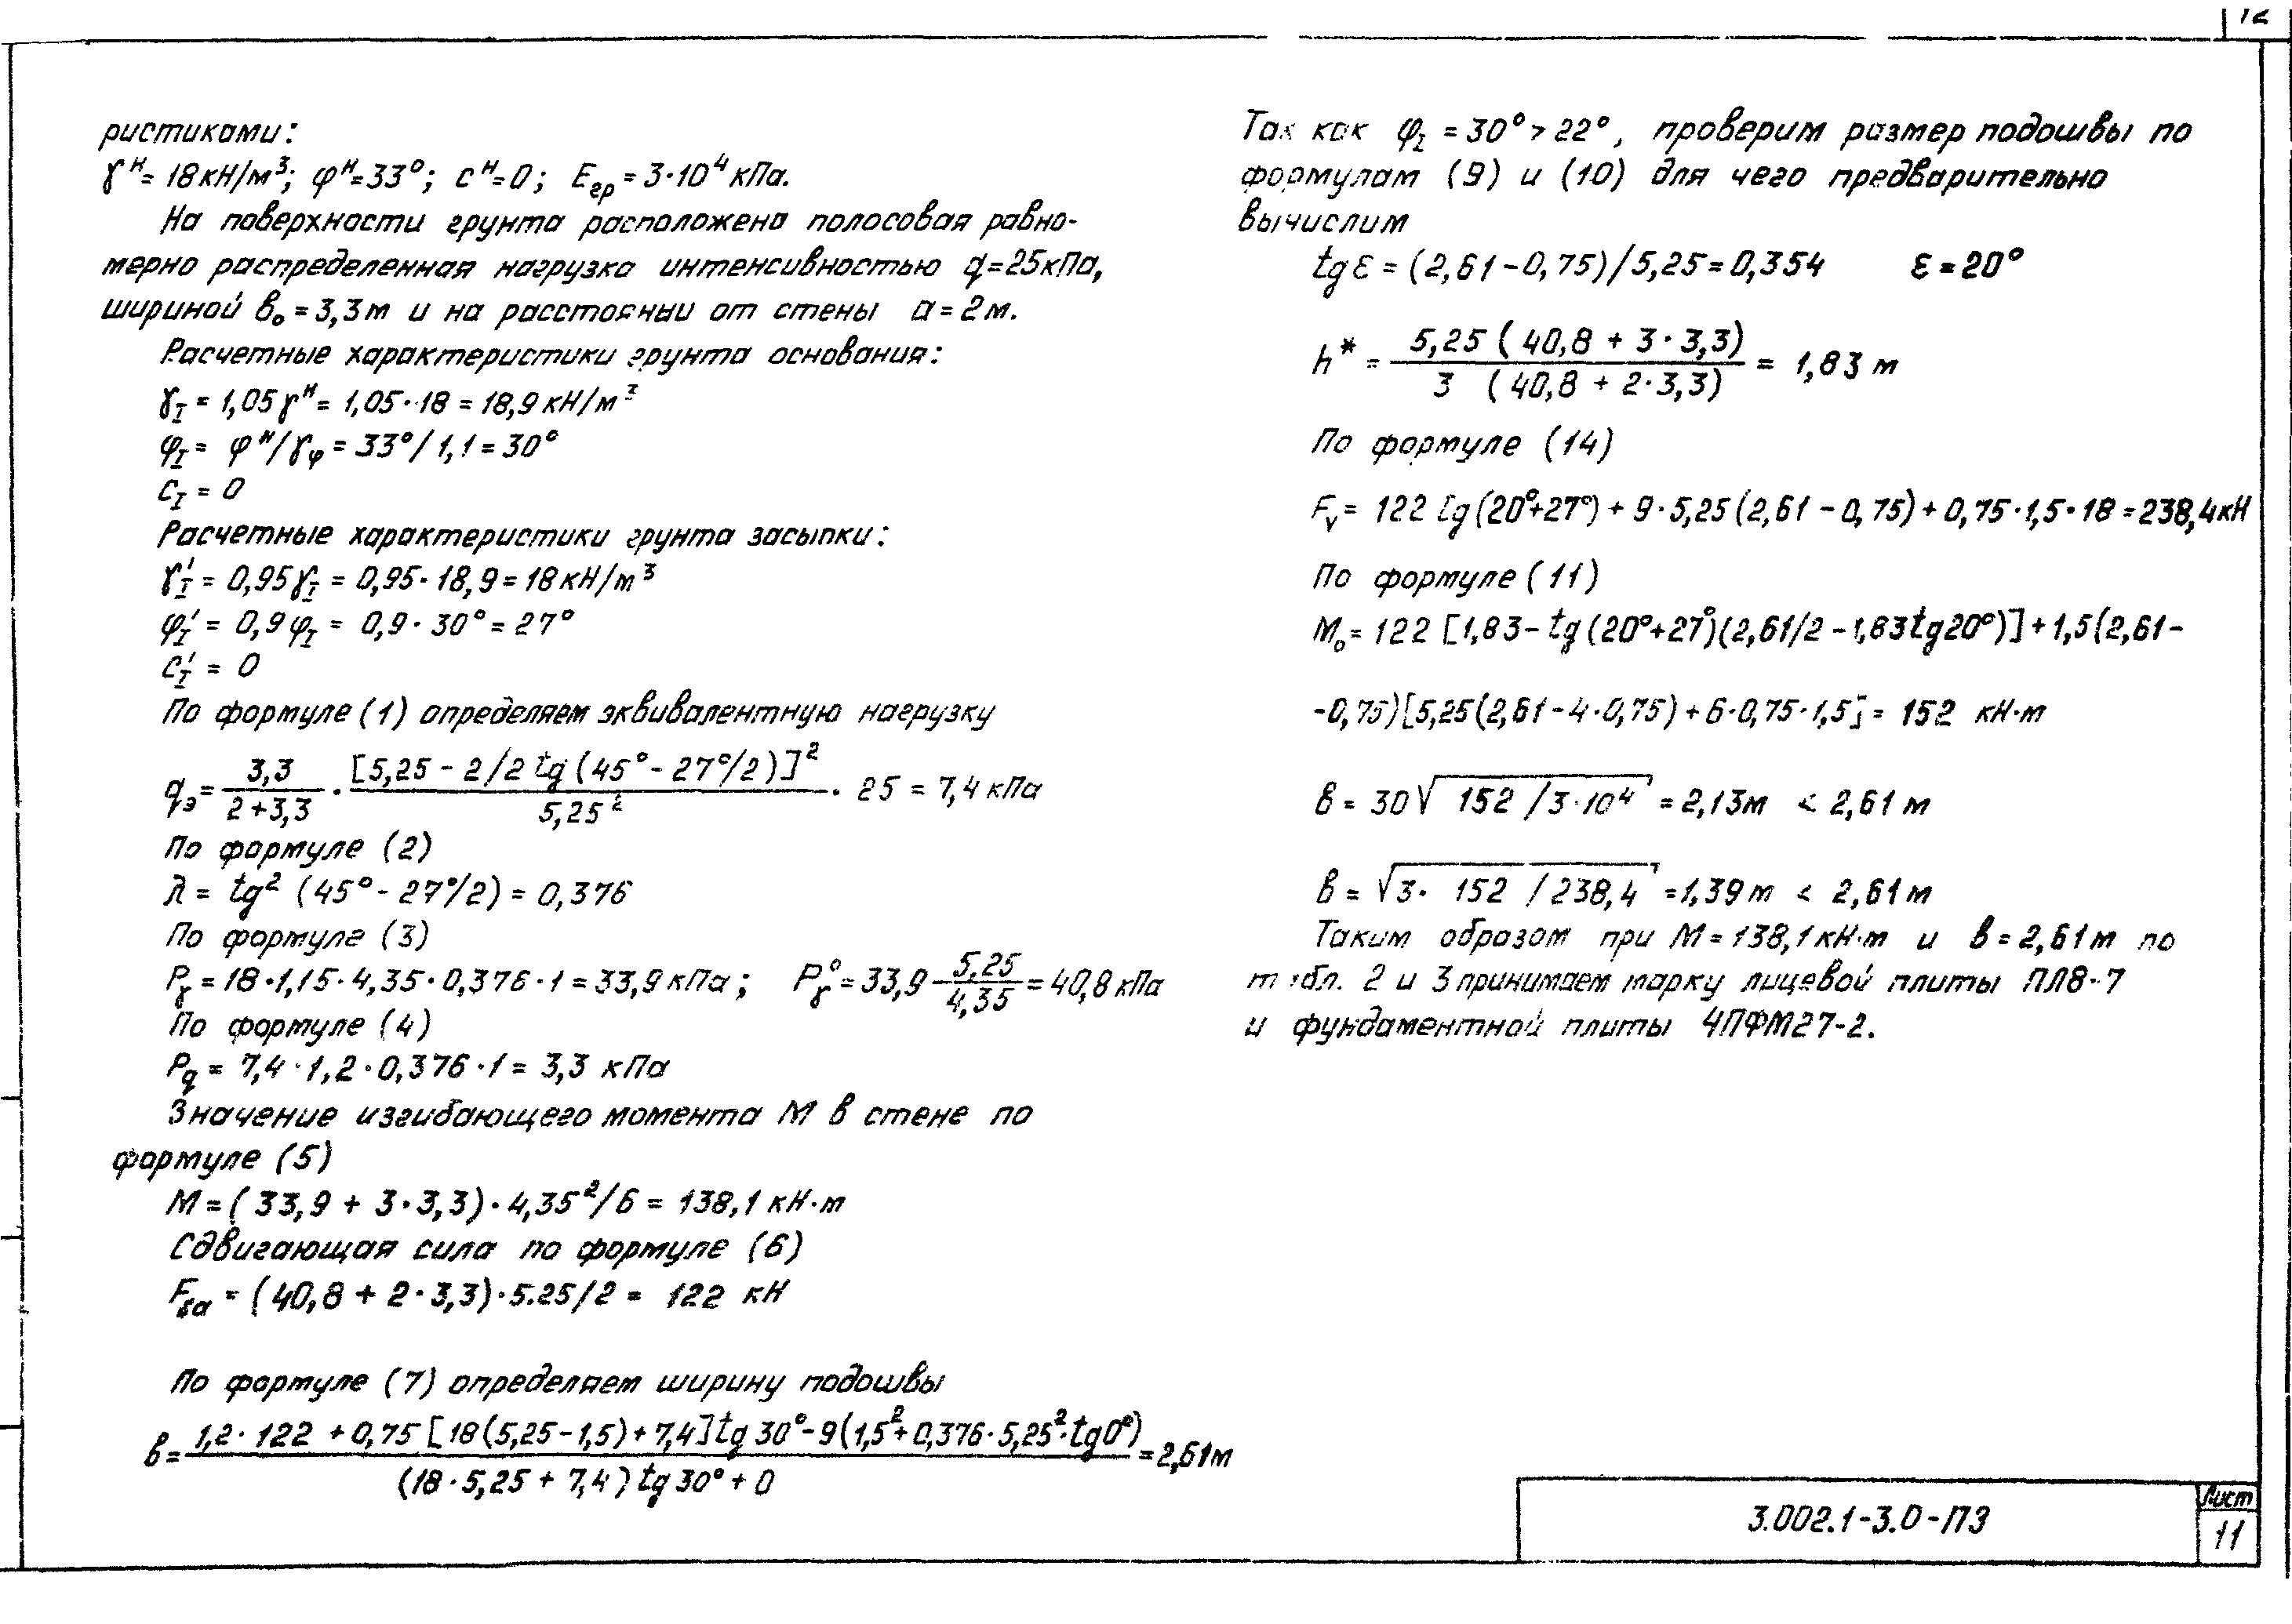 12
ристиками:
γᴴ = 18 кН/м³; φᴴ = 33°; cᴴ = 0; Eгр = 3·10⁴ кПа.
На поверхности грунта расположена полосовая равно-
мерно распределенная нагрузка интенсивностью q = 25 кПа,
шириной b₀ = 3,3 м и на расстоянии от стены a = 2 м.
Расчетные характеристики грунта основания:
γ_I = 1,05 γᴴ = 1,05·18 = 18,9 кН/м³
φ_I = φᴴ/γ_φ = 33°/1,1 = 30°
c_I = 0
Расчетные характеристики грунта засыпки:
γ'_I = 0,95 γ_I = 0,95·18,9 = 18 кН/м³
φ'_I = 0,9 φ_I = 0,9·30° = 27°
c'_I = 0
По формуле (1) определяем эквивалентную нагрузку
qэ = 3,3/(2+3,3) · [5,25 - 2/2 tg (45° - 27°/2)]²/5,25² · 25 = 7,4 кПа
По формуле (2)
λ = tg² (45° - 27°/2) = 0,376
По формуле (3)
P_γ = 18·1,15·4,35·0,376·1 = 33,9 кПа; P_γ° = 33,9 5,25/4,35 = 40,8 кПа
По формуле (4)
P_q = 7,4·1,2·0,376·1 = 3,3 кПа
Значение изгибающего момента М в стене по
формуле (5)
М = (33,9 + 3·3,3)·4,35²/6 = 138,1 кН·м
Сдвигающая сила по формуле (6)
F_sa = (40,8 + 2·3,3)·5.25/2 = 122 кН
По формуле (7) определяем ширину подошвы
b = (1,2·122 + 0,75 [18(5,25 - 1,5) + 7,4] tg 30° - 9(1,5² + 0,376·5,25²·tg 0°))/((18·5,25 + 7,4) tg 30° + 0) = 2,61 м
Так как φ_I = 30° > 22°, проверим размер подошвы по
формулам (9) и (10) для чего предварительно
вычислим
tg ε = (2,61 - 0,75)/5,25 = 0,354 ε = 20°
h* = 5,25 (40,8 + 3·3,3)/3 (40,8 + 2·3,3) = 1,83 м
По формуле (14)
F_v = 122 tg (20° + 27°) + 9·5,25 (2,61 - 0,75) + 0,75·1,5·18 = 238,4 кН
По формуле (11)
М₀ = 122 [1,83 - tg (20° + 27°)(2,61/2 - 1,83 tg 20°)] + 1,5 (2,61 -
- 0,75)[5,25(2,61 - 4·0,75) + 6·0,75·1,5] = 152 кН·м
b = 30 √(152/3·10⁴) = 2,13 м < 2,61 м
b = √(3·152/238,4) = 1,39 м < 2,61 м
Таким образом при М = 138,1 кН·м и b = 2,61 м по
табл. 2 и 3 принимаем марку лицевой плиты ПЛ8-7
и фундаментной плиты 4ПФМ27-2.
3.002.1-3.0-ПЗ
Лист
11